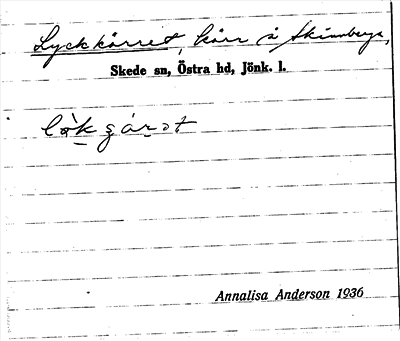 Lyckkärret, kärr å Skinnberga,
Skede sn, Östra hd, Jönk. l.
Annalisa Anderson 1936